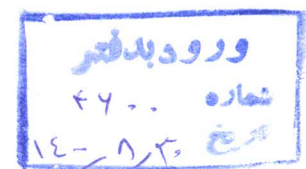 ورود بدفتر
شماره ۴۶۰۰
تاریخ ۱۴۰۰٫۸٫۳۰